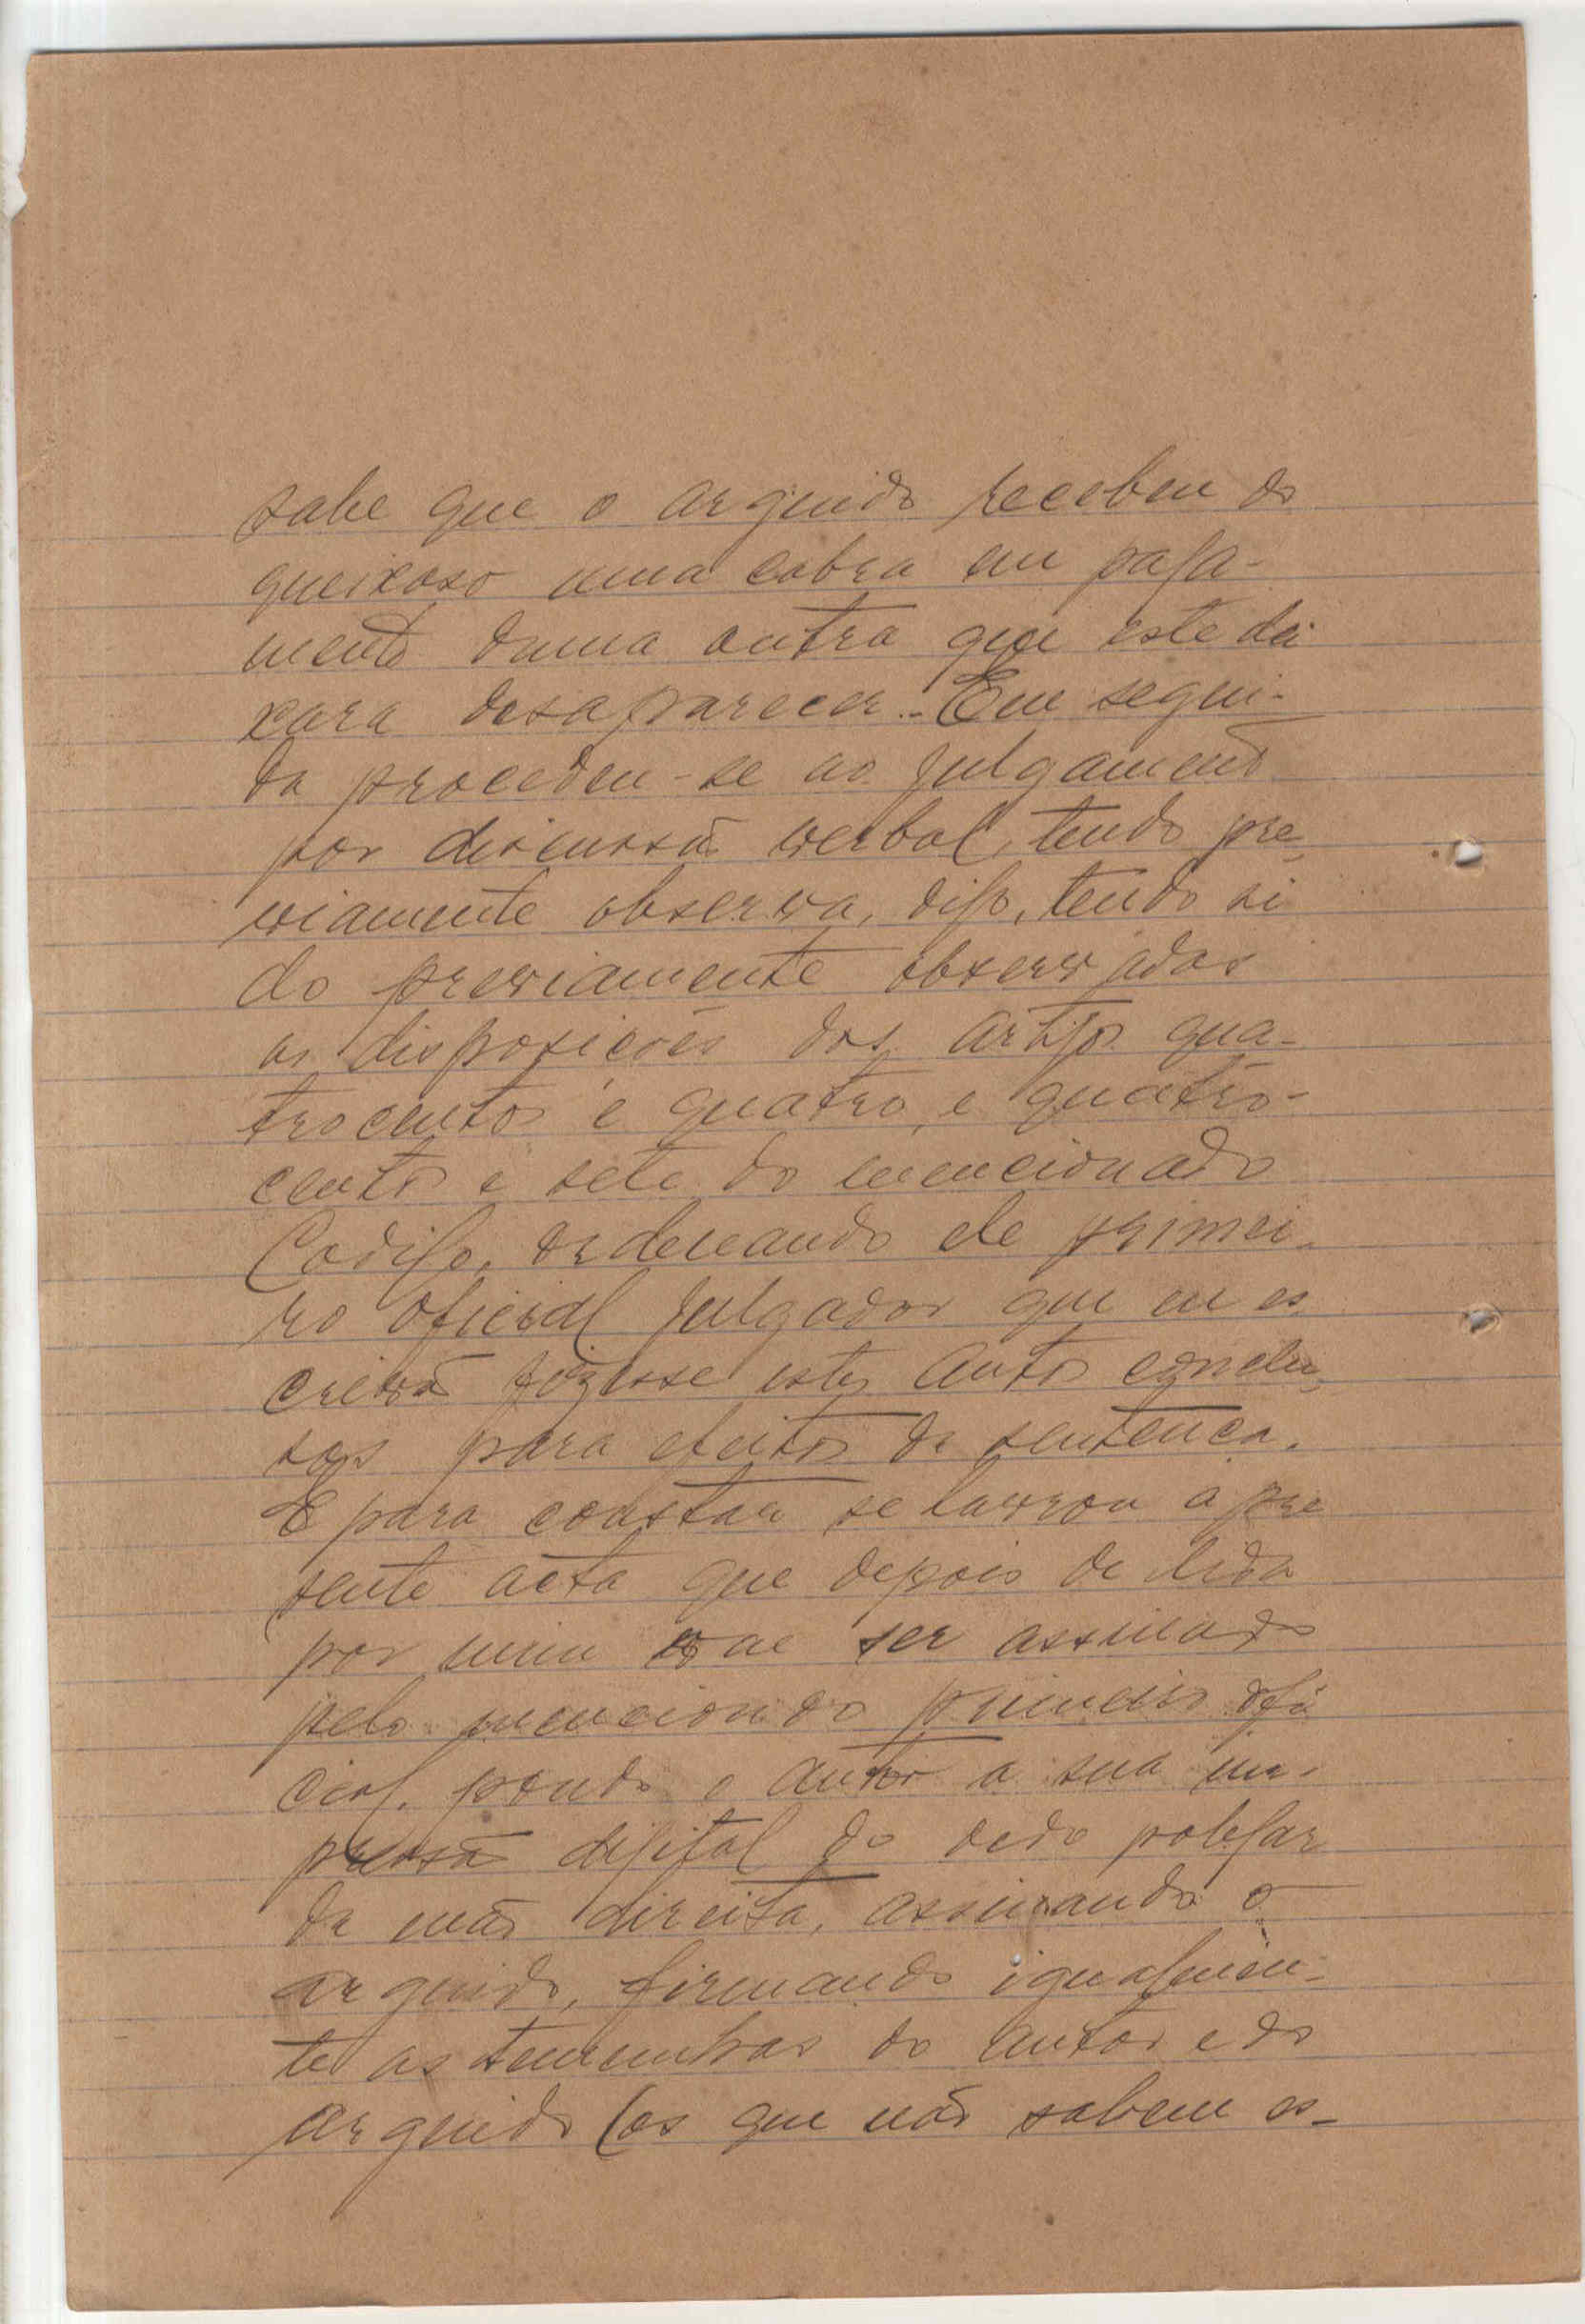 sabe que o arguido recebeu do
queixoso uma cabra em paga-
mento duma outra que este dei
xara desaparecer.- Em segui-
da procedeu-se ao julgamento
por discussão verbal, tendo pre
viamente observa, digo, tendo si
do previamente observadas
as disposições dos artigos qua-
trocentos e quatro, e quatro-
centos e sete do mencionado
Codigo, ordenando ele primei-
ro oficial julgador que eu es
crivão fizesse estes autos conclu-
sos para efeitos de sentença.
E para constar se lavrou a pre
sente acta que depois de lida
por mim vae ser assinado
pelo mencionado primeiro ofi
cial, pondo o autor a sua im-
pressão digital do dedo polegar
da mão direita, assinando o
arguido, firmando igualmen-
te as temunhas do autor e do
arguido (as que não sabem es-